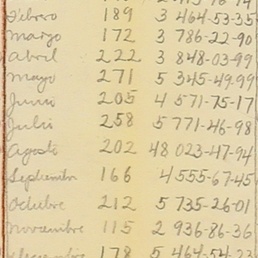 Febrero 189 3 464-53-35
Marzo 172 3 786-22-90
Abril 222 3 848-03-99
Mayo 271 5 345-49-99
Junio 205 4 571-75-17
Julio 258 5 771-46-98
Agosto 202 48 023-47-94
Septiembre 166 4555-67-45
Octubre 212 5 735-26-01
Noviembre 115 2 936-86-36
178 5 464-54-23